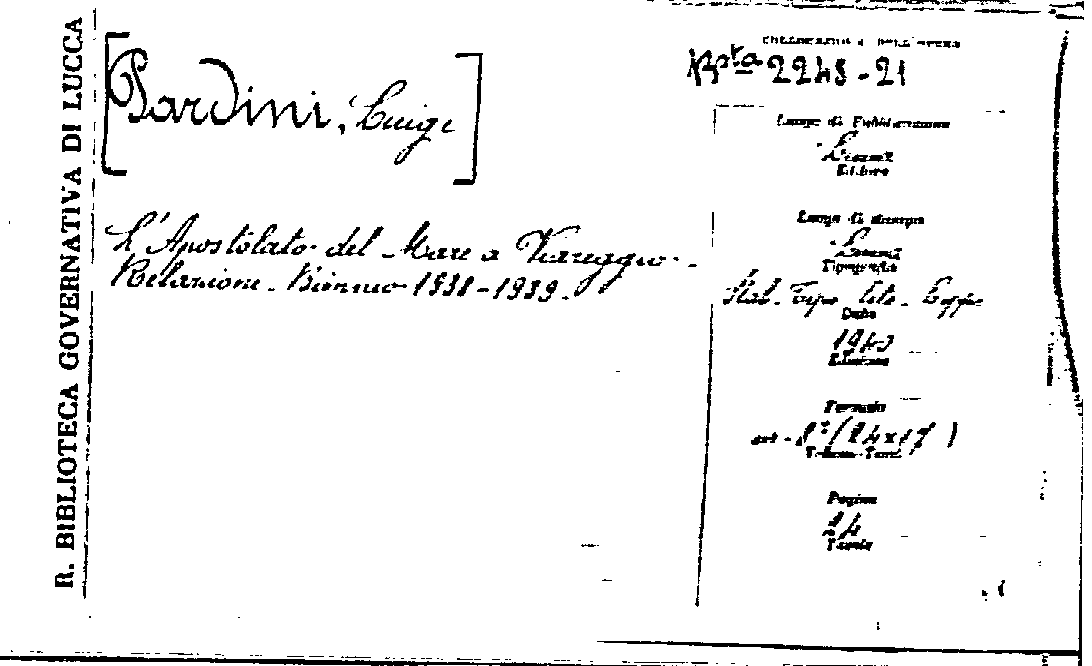 R. BIBLIOTECA GOVERNATIVA DI LUCCA
[Pardini, Luigi]
L'Apostolato del Mare a Viareggio.
Relazione. Biennio 1938-1939.
COLLOCAZIONE DELL'OPERA
Bsta 2248-21
Luogo di Pubblicazione
Lucca
Editore
Luogo di stampa
Lucca
Tipografia
Stab. Tipo Lito
Data
1940
Edizione
Formato
8° (24x17)
Pagine
24
Tavole